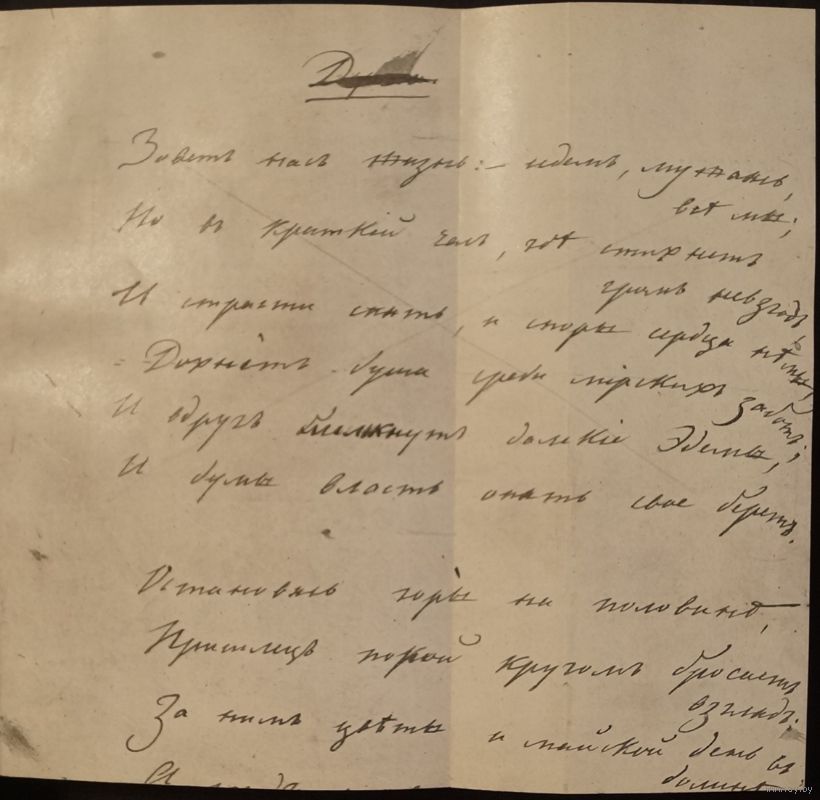 Зоветъ насъ жизнь:— идемъ, мужаясь,
всѣ мы;
Но въ краткій часъ, гдѣ стихнетъ
громъ невзгодъ,
И страсти спятъ, и споры сердца нѣмы,
- Дохнётъ душа среди мірскихъ заботъ;
И вдругъ далекіе Эдемы,
И думы власть опять свое беретъ.
Остановясь горы на половинѣ,
Пришлецъ порой кругомъ бросаетъ
взглядъ:
За нимъ цвѣты и майской день въ
долинѣ